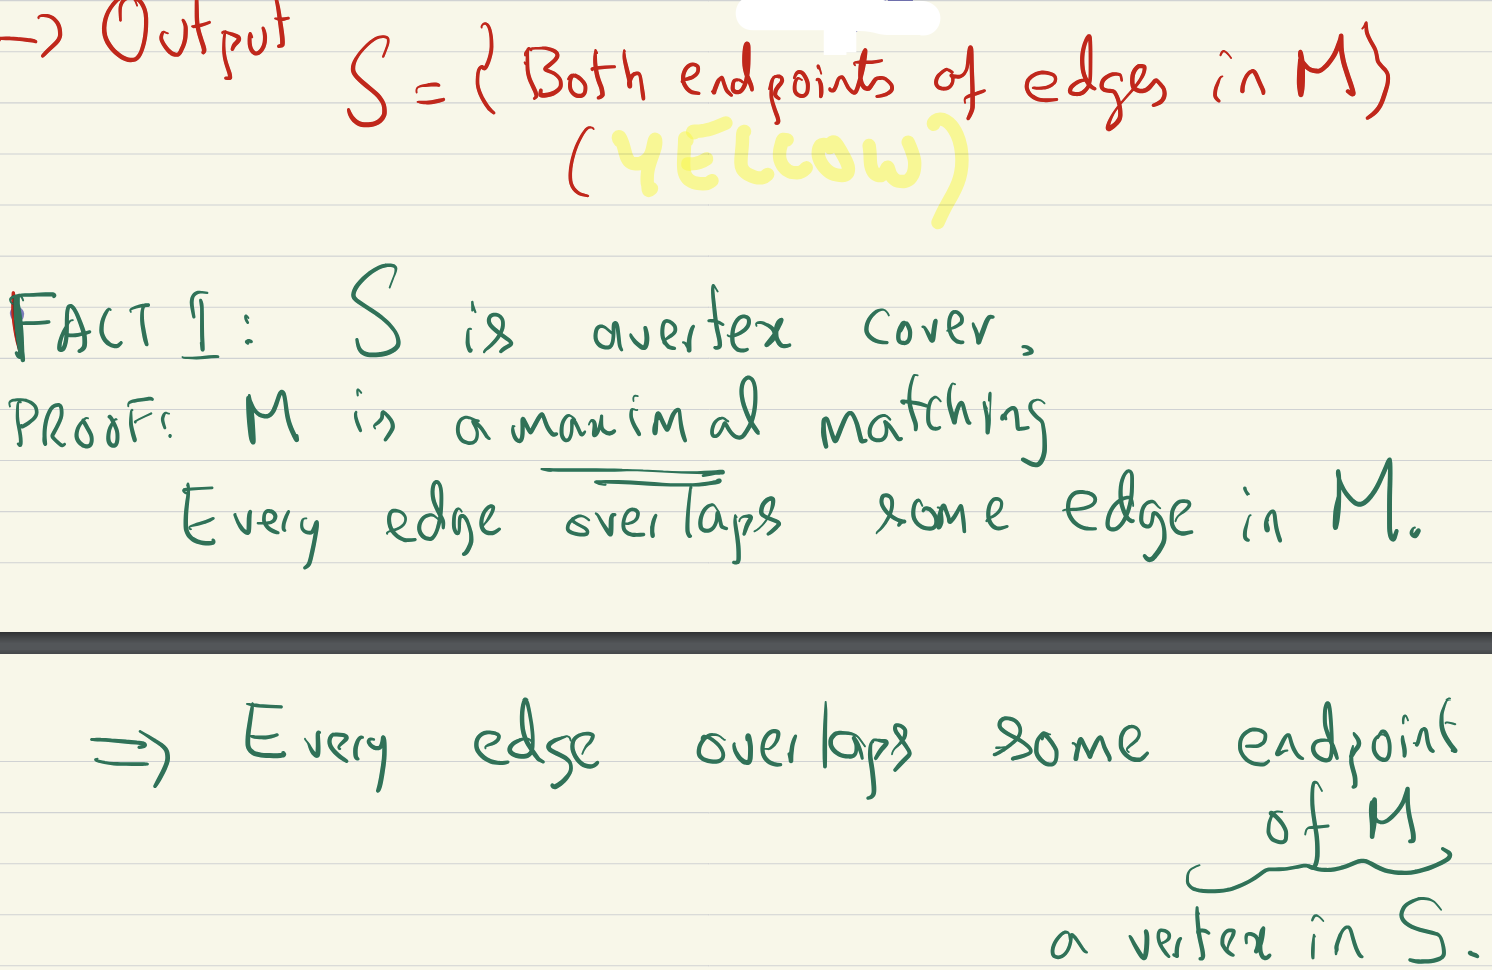 → Output
S = { Both endpoints of edges in M }
(YELLOW)
FACT I: S is a vertex cover.
PROOF: M is a maximal matching
Every edge overlaps some edge in M.
⇒ Every edge overlaps some endpoint
of M
a vertex in S.